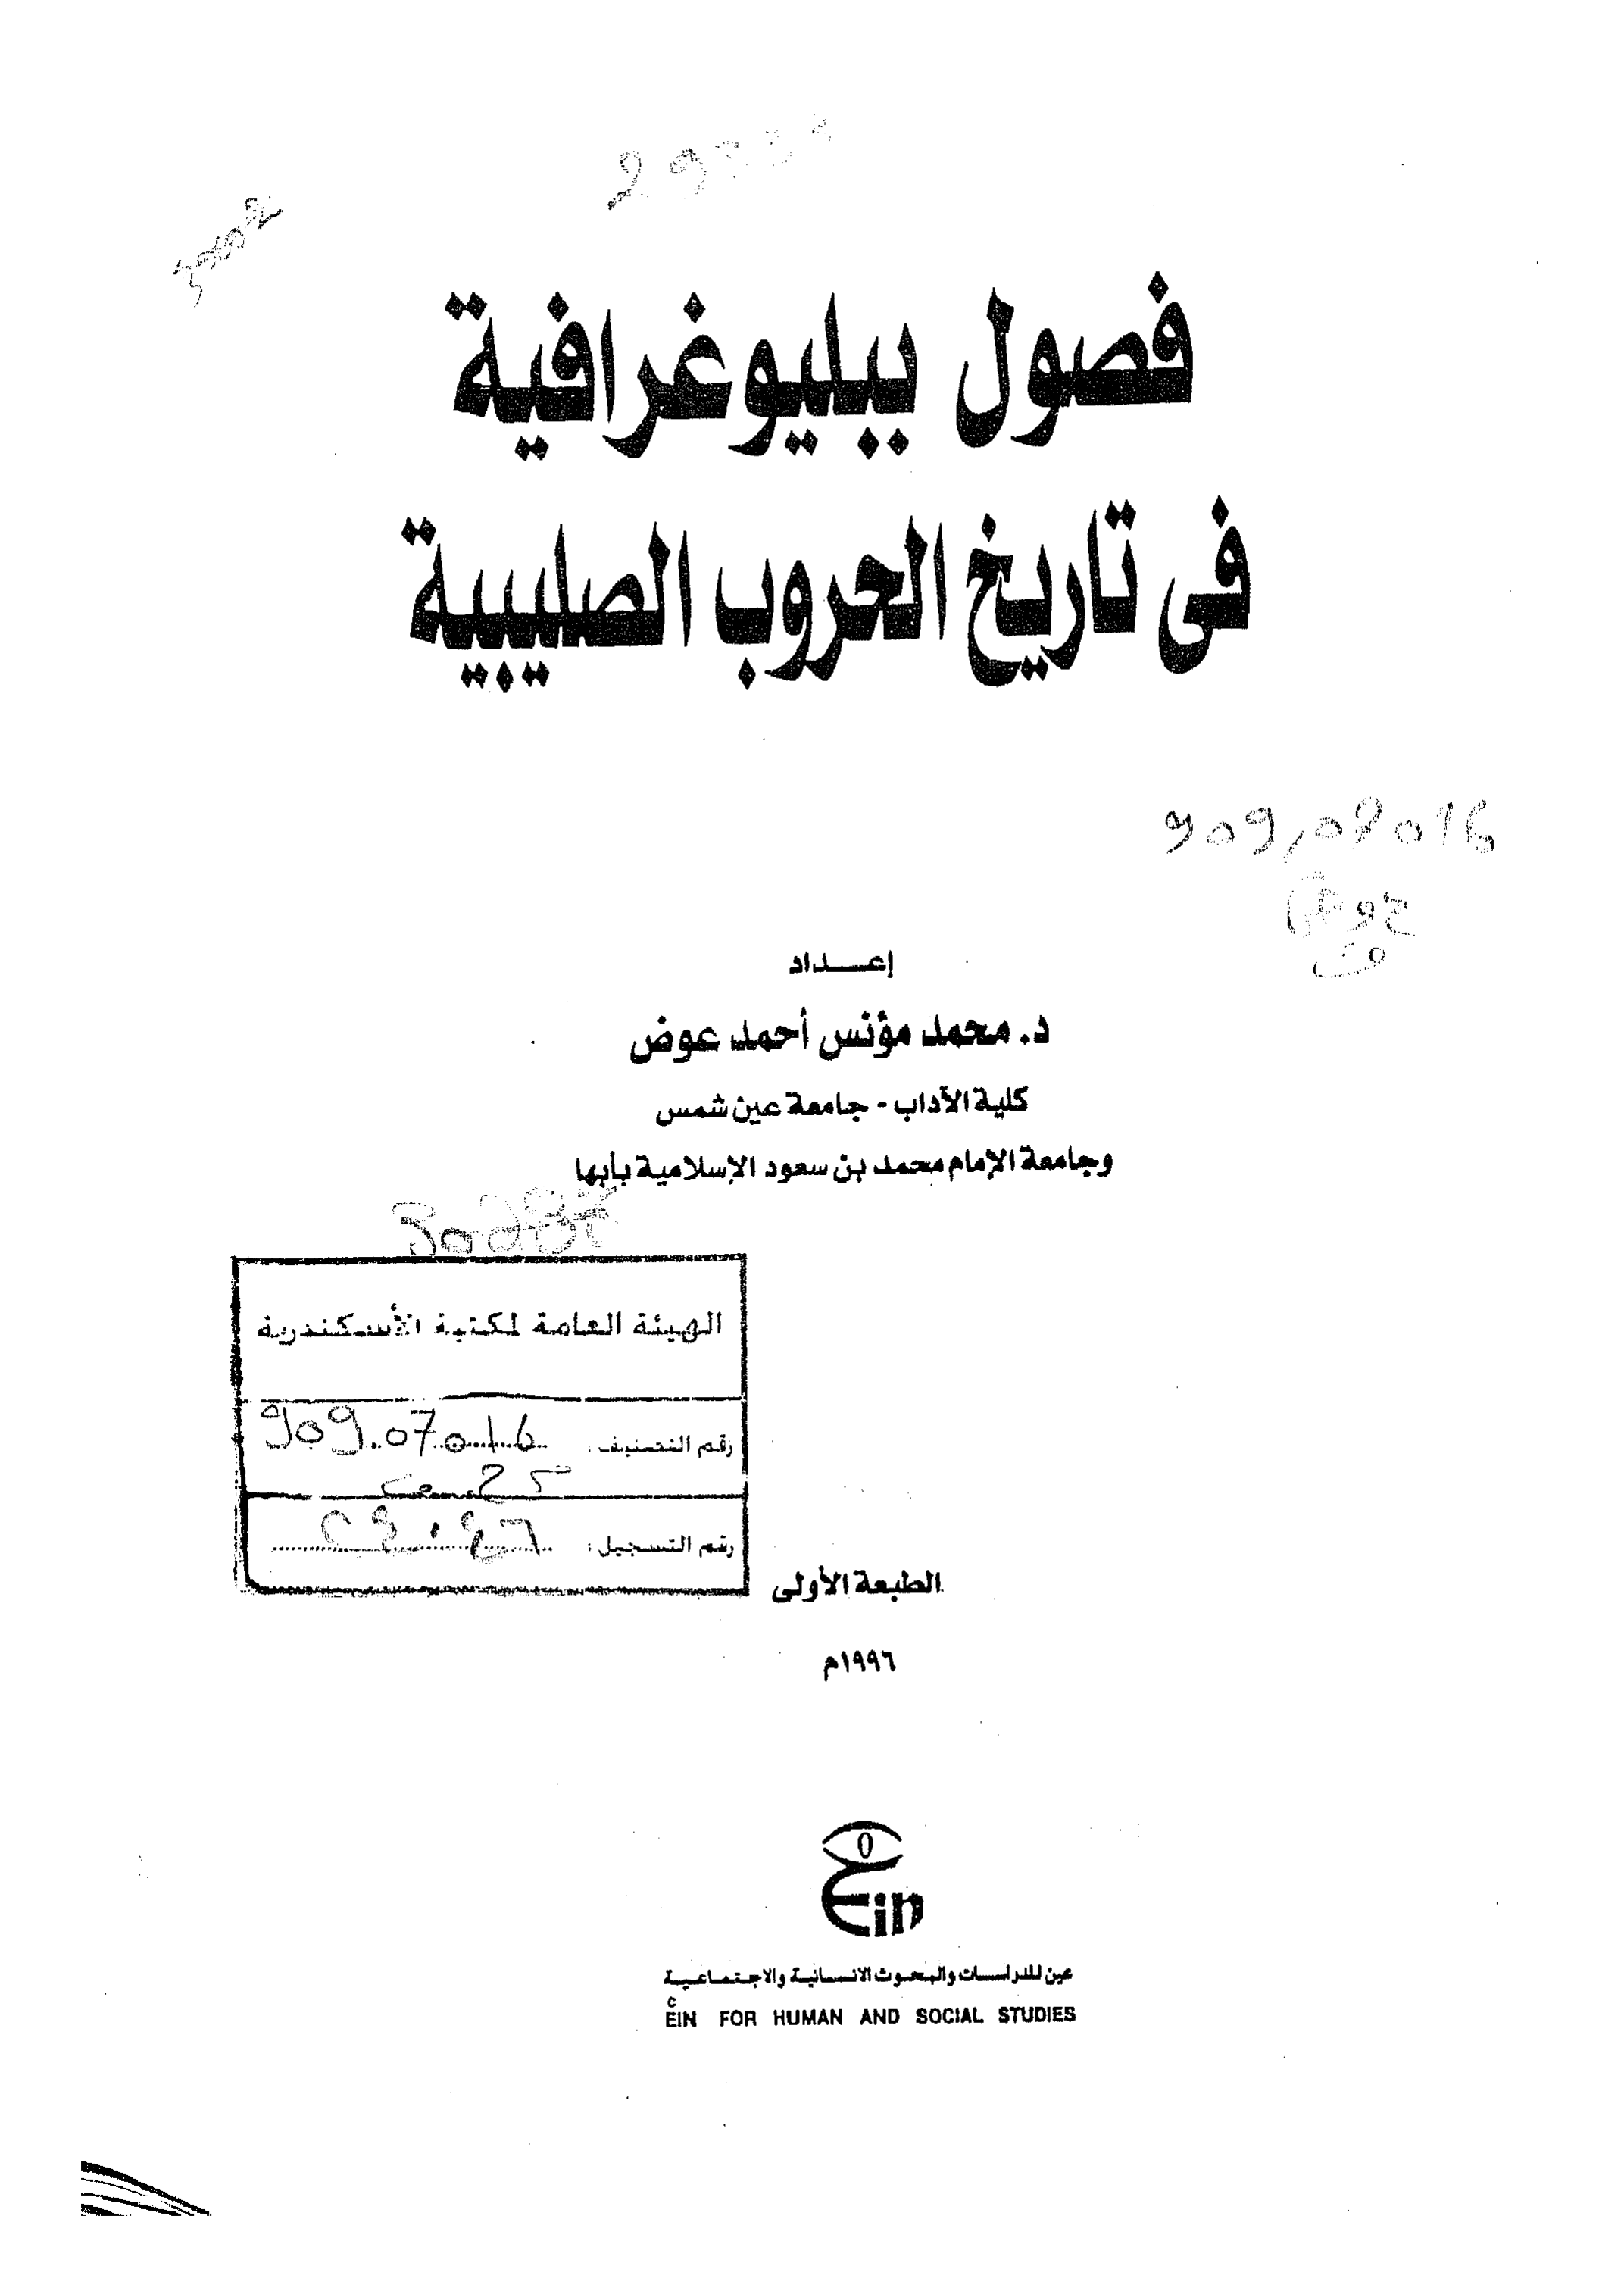 فصول ببليوغرافية
فى تاريخ الحروب الصليبية
909,07016
إعــداد
د. محمد مؤنس أحمد عوض
كلية الآداب - جامعة عين شمس
وجامعة الإمام محمد بن سعود الإسلامية بأبها
الهيئة العامة لمكتبة الأسكندرية
رقم التصنيف: 909.07016
رقم التسجيل:
الطبعة الأولى
١٩٩٦م
Ein
عين للدراسات والبحوث الانسانية والاجتماعية
EIN FOR HUMAN AND SOCIAL STUDIES